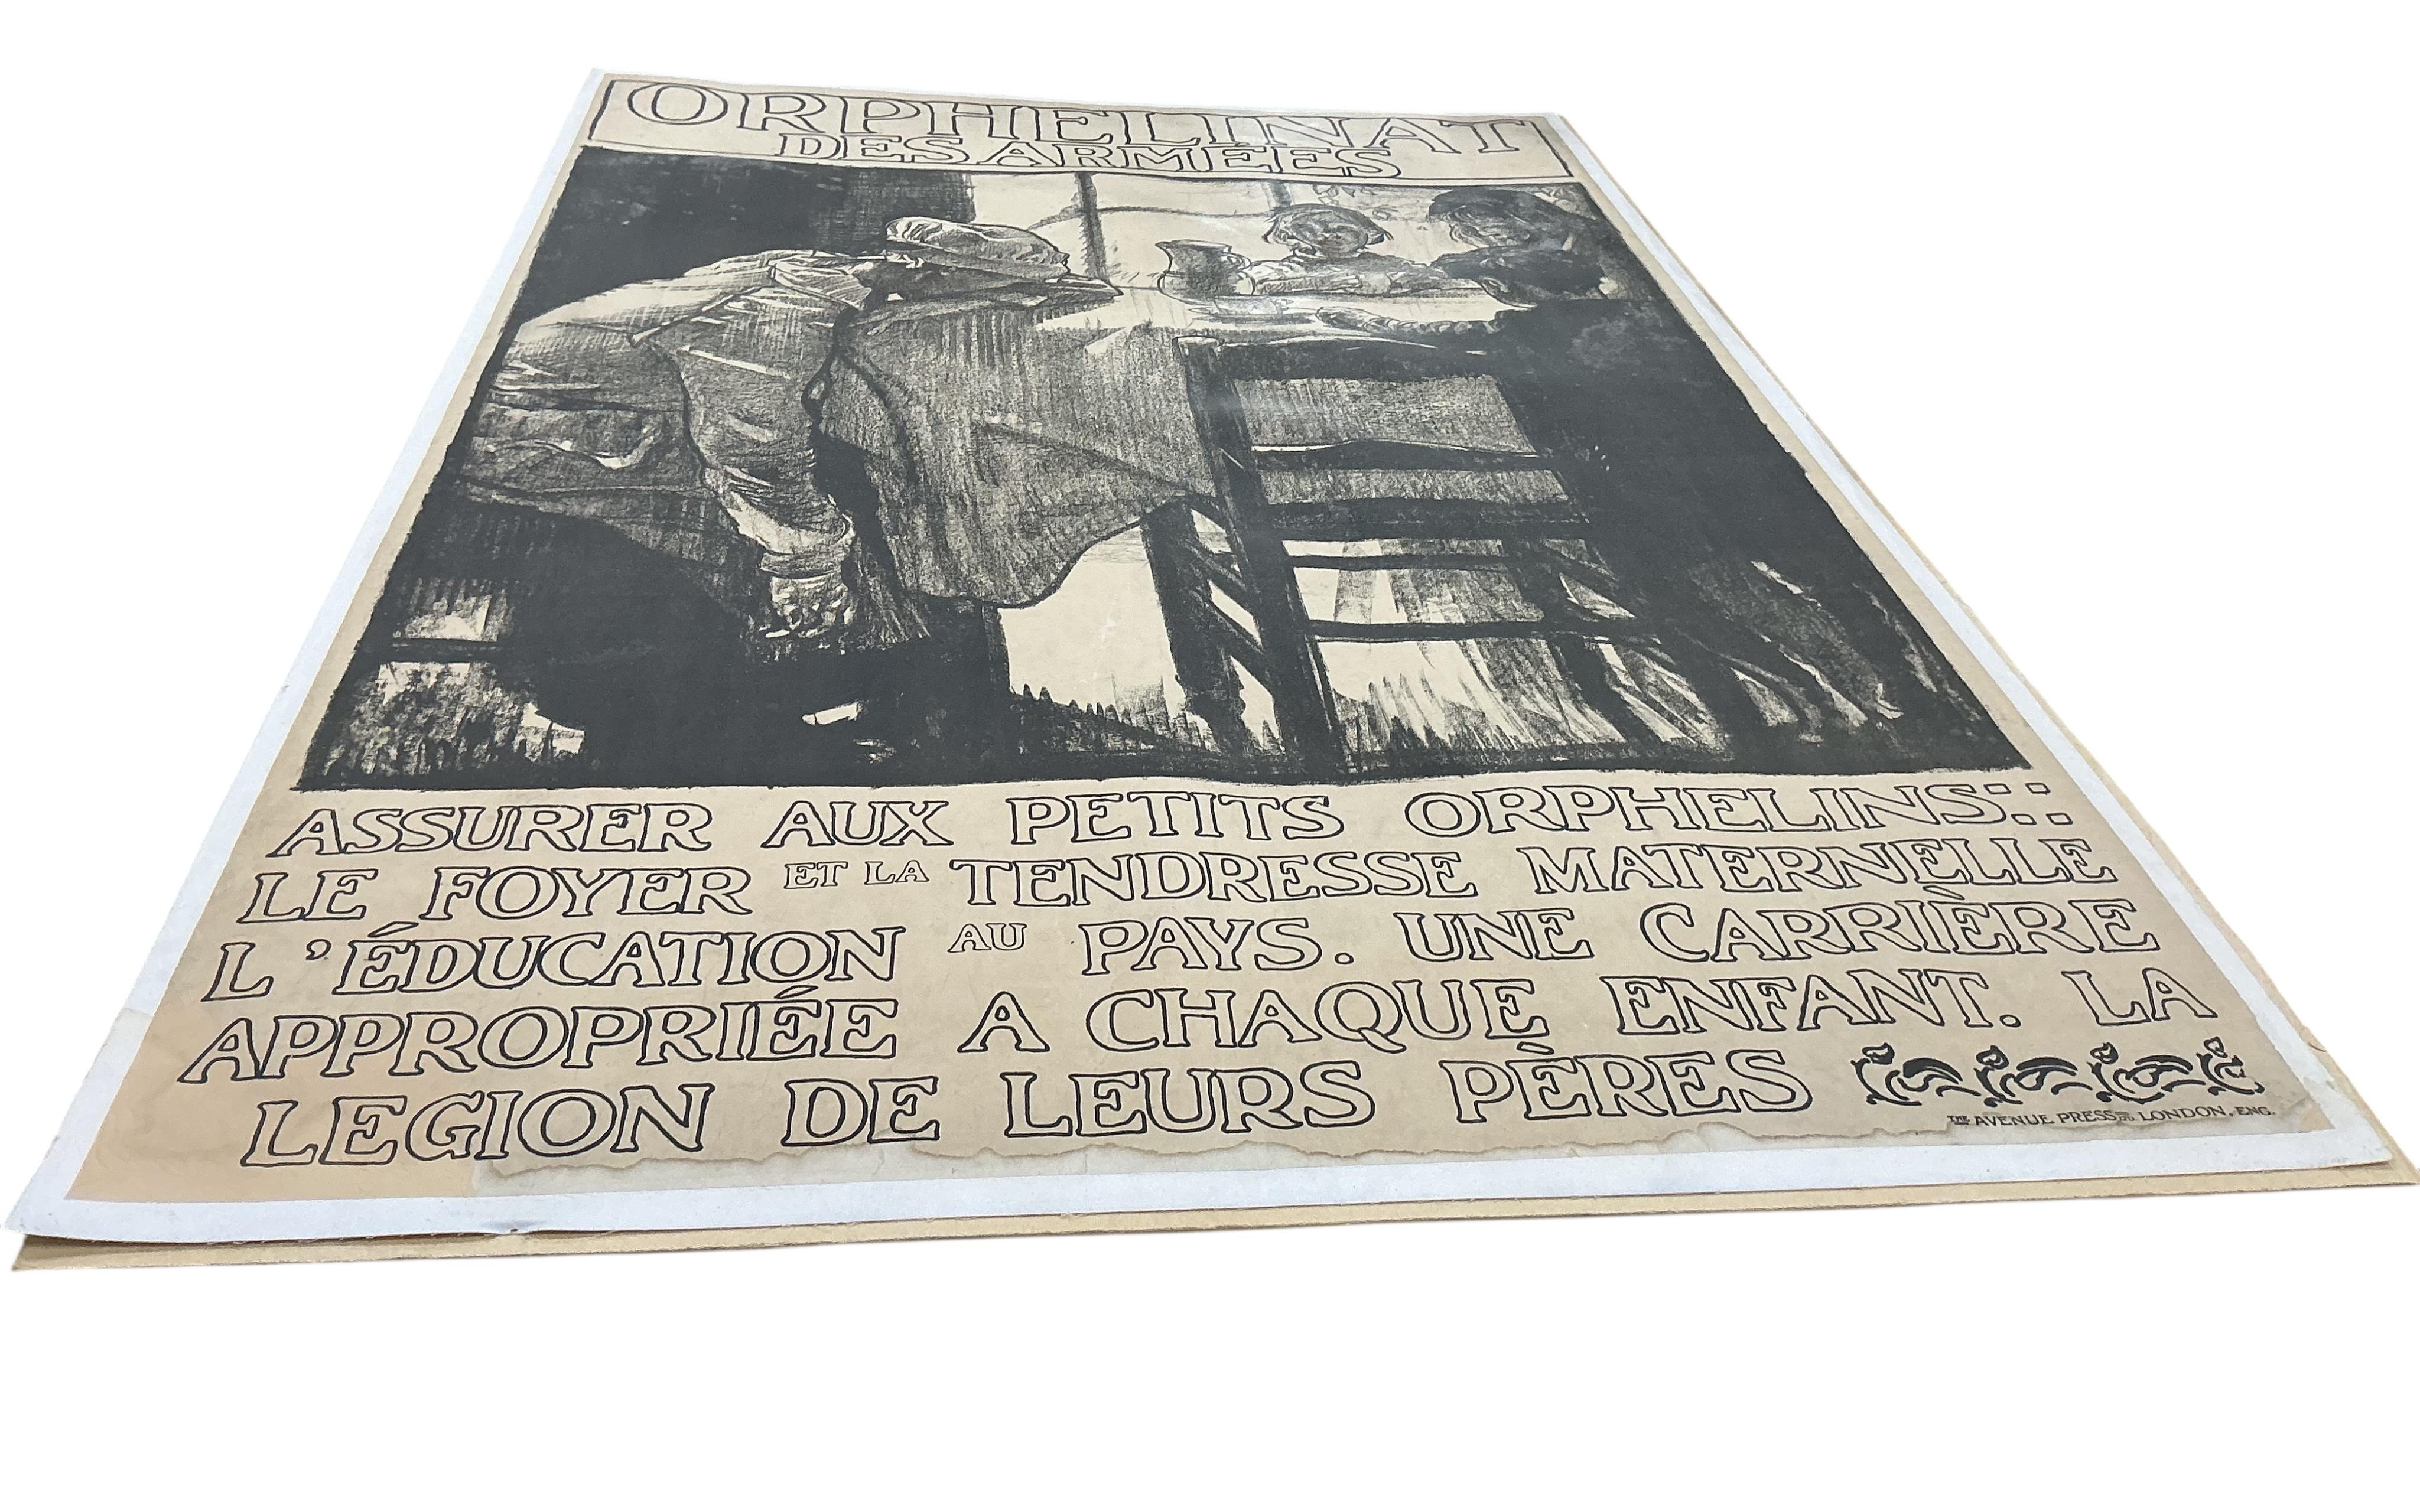 ORPHELINAT
DES ARMÉES
ASSURER AUX PETITS ORPHELINS::
LE FOYER ET LA TENDRESSE MATERNELLE
L'ÉDUCATION AU PAYS. UNE CARRIÈRE
APPROPRIÉE A CHAQUE ENFANT. LA
LEGION DE LEURS PÈRES
THE AVENUE PRESS LONDON, ENG.